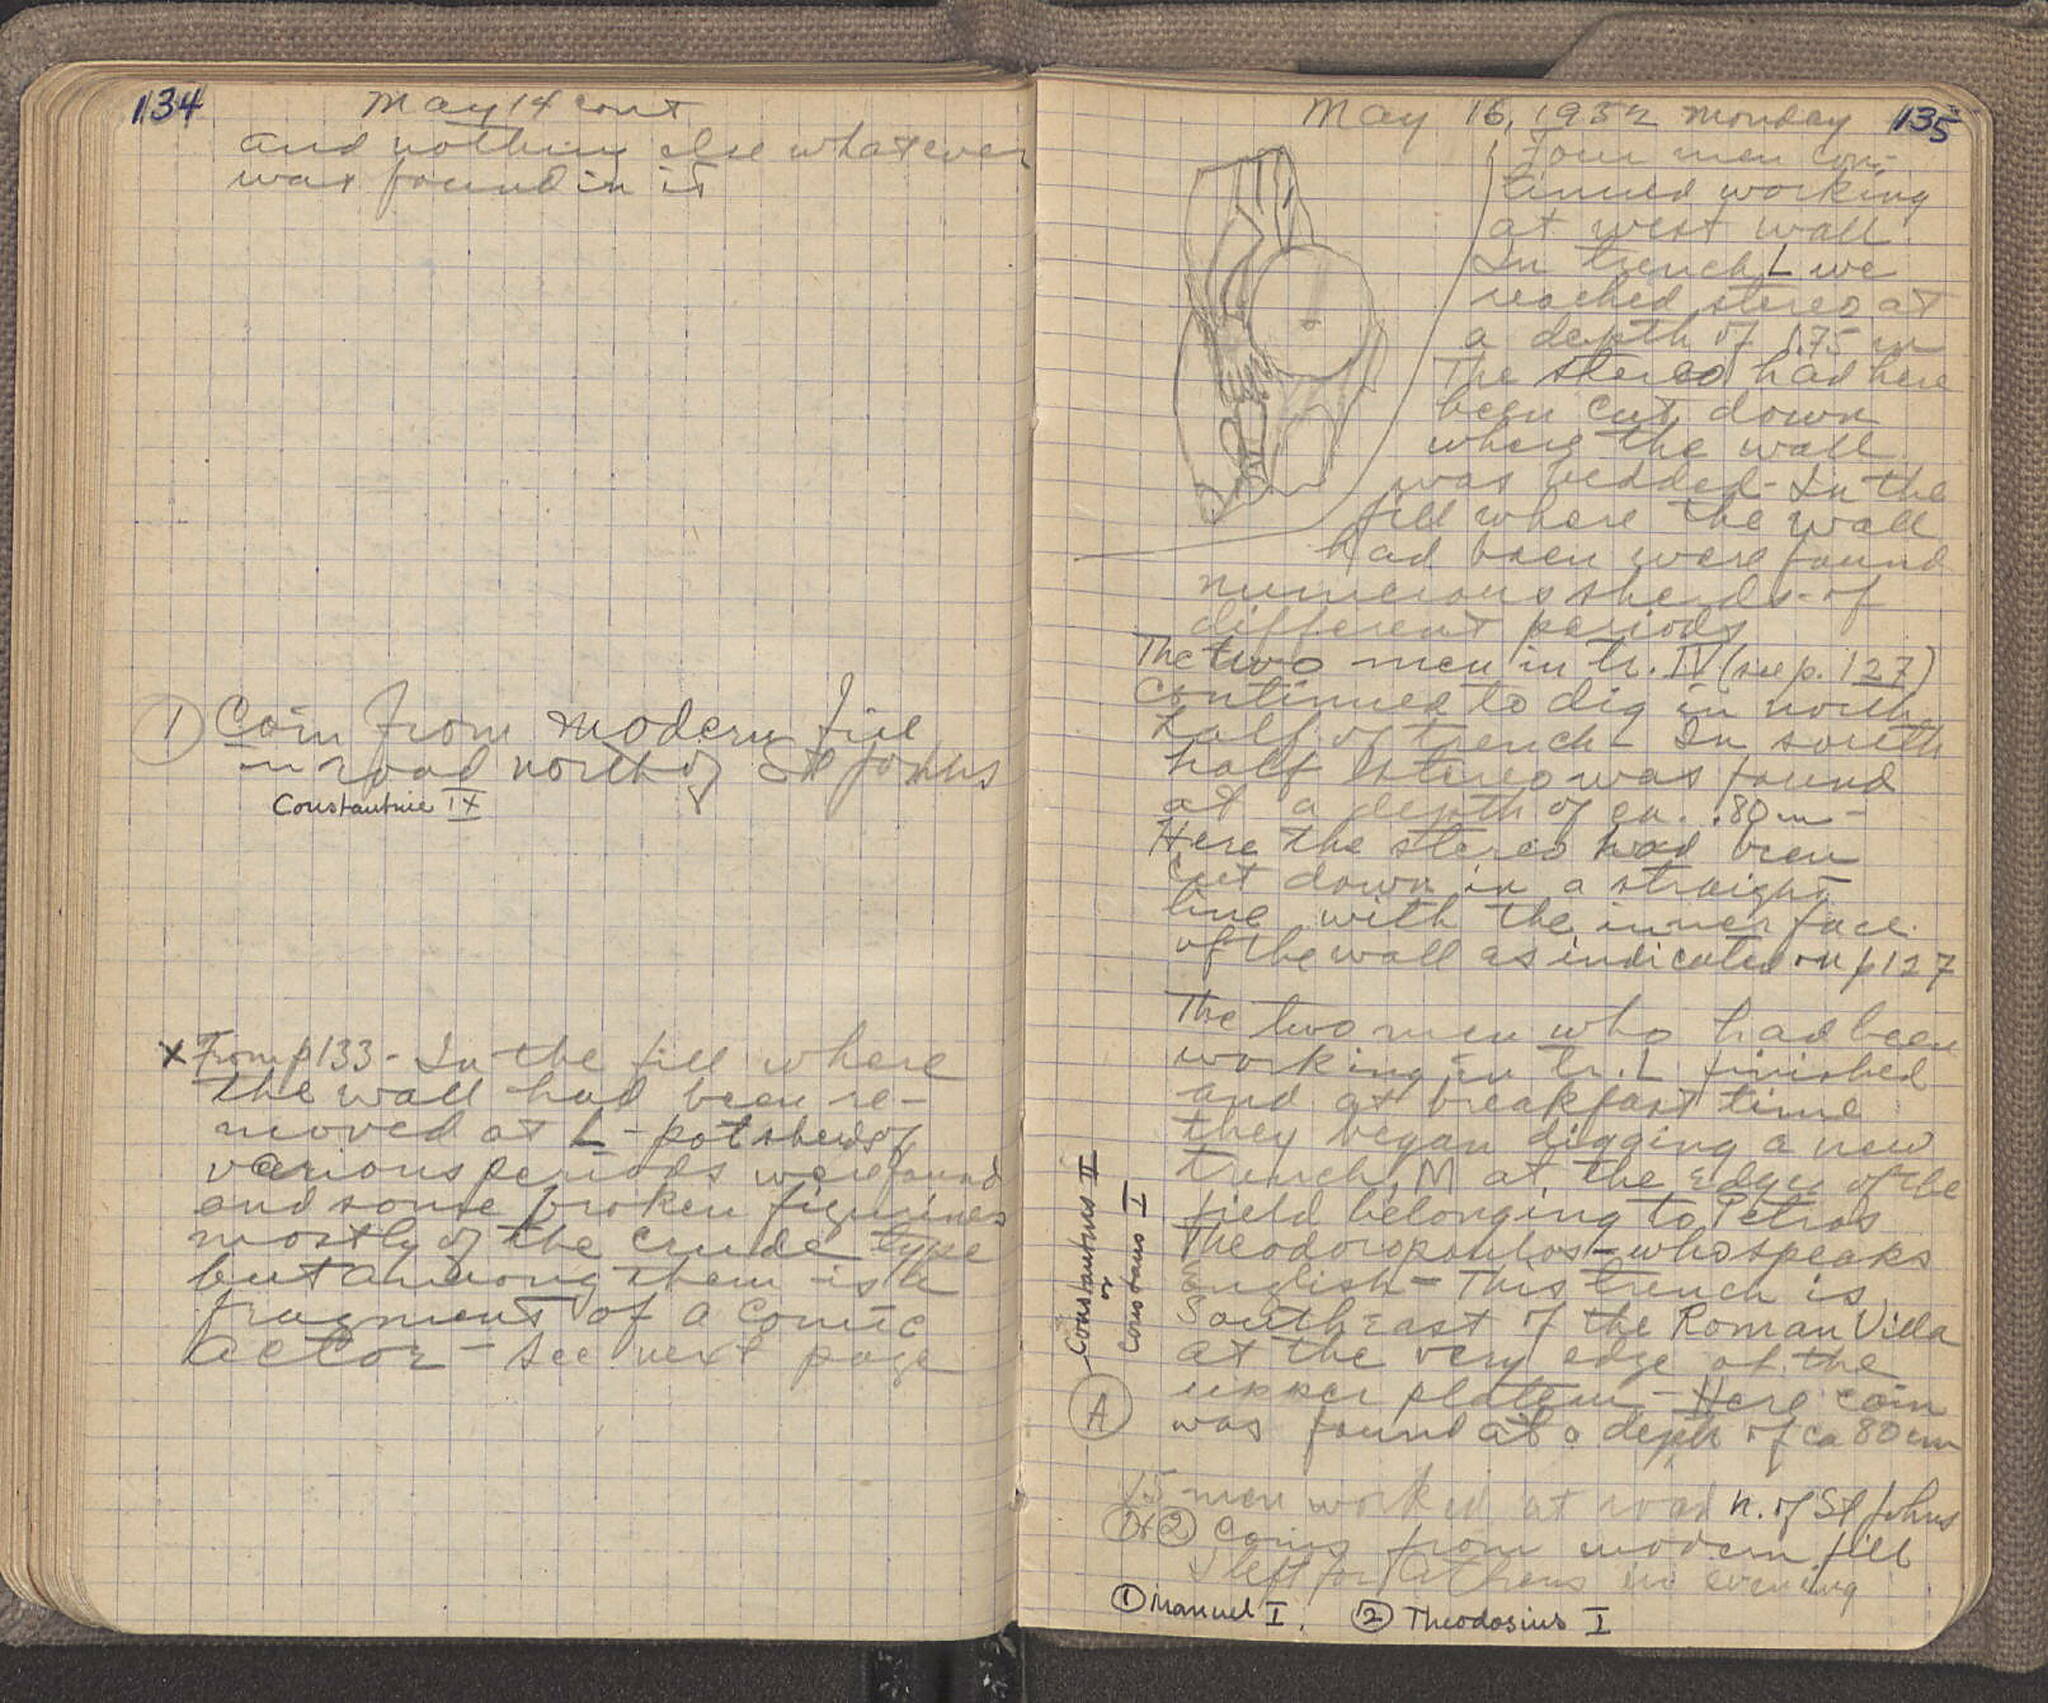 134
May 14 cont
and nothing else whatever
was found in it
① Coin from modern fill
in road north of St Johns
Constantine IX
x From p 133 - In the fill where
the wall had been re-
moved at L - potsherds of
various periods were found
and some broken figurines
mostly of the crude type
but among them is a
fragment of a comic
actor - see next page
135
May 16, 1932 Monday
Four men con-
tinued working
at west wall.
In trench L we
reached stereo at
a depth of 1.75 m
The stereo had here
been cut down
where the wall
was bedded - In the
fill where the wall
had been were found
numerous sherds of
different periods
The two men in tr. IV (see p. 127)
continued to dig in north
half of trench - In south
half stereo was found
at a depth of ca. .80 m -
Here the stereo had been
cut down in a straight
line with the inner face
of the wall as indicated on p 127
The two men who had been
working in tr. L finished
and at breakfast time
they began digging a new
trench, M at the edge of the
field belonging to Petros
Theodoropoulos - who speaks
English - This trench is
Southeast of the Roman Villa
at the very edge of the
upper plateau - Here coin
was found at a depth of ca 80 cm
Constantius II
or
Constans I
Ⓐ
15 men worked at road n. of St Johns
①+② Coins from modern fill
I left for Athens in evening
① Manuel I. ② Theodosius I